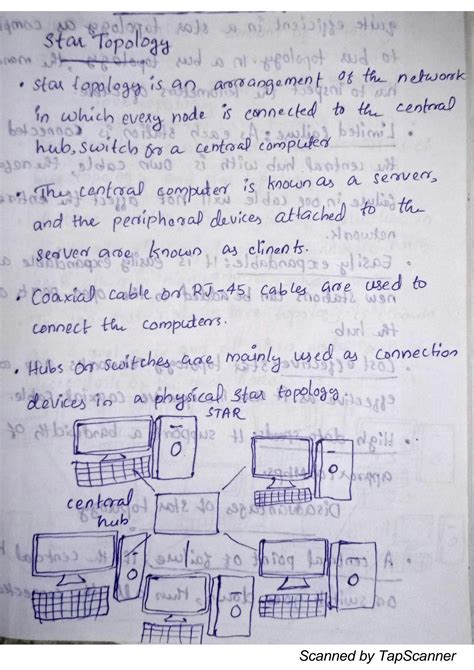 Star Topology
• star topology is an arrangement of the network
in which every node is connected to the central
hub, switch or a central computer
• The central computer is known as a server,
and the peripheral devices attached to the
server are known as clinents.
• Coaxial cable or RJ-45 cables are used to
connect the computers.
• Hubs or switches are mainly used as connection
devices in a physical star topology
STAR
central
hub
Scanned by TapScanner